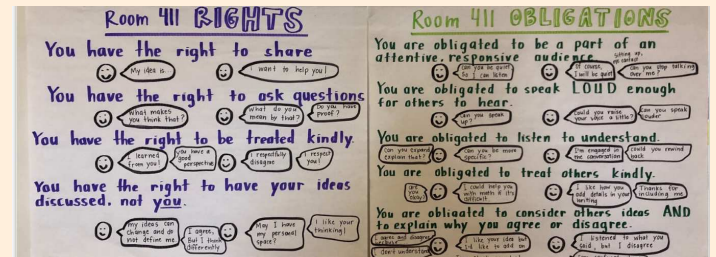 Room 411 RIGHTS
You have the right to share
My idea is...
I want to help you!
You have the right to ask questions
What makes
you think that?
What do you
mean by that?
Do you have
proof?
You have the right to be treated kindly.
I learned
from you!
you have a
good
perspective
I respectfully
disagree
I respect
you!
You have the right to have your ideas
discussed, not you.
my ideas can
change and do
not define me.
I agree,
But I think
differently
May I have
my personal
space?
I like your
thinking!
Room 411 OBLIGATIONS
You are obligated to be a part of an
attentive, responsive audience
sitting up,
eye contact
Can you be quiet
So I can listen
Of course,
I will be quiet
Can you stop talking
over me?
You are obligated to speak LOUD enough
for others to hear.
Can you speak
up?
Could you raise
your voice a little?
Can you speak
louder
You are obligated to listen to understand.
Can you expand
explain that?
Can you be more
specific?
I'm engaged in
the conversation
could you rewind
back
You are obligated to treat others kindly.
are
you
okay?
I could help you
with math if it's
difficult.
I like how you
add details in your
writing
Thanks for
including me
You are obligated to consider others ideas AND
to explain why you agree or disagree.
I agree and disagree
because
I don't understand
I like your idea but
I'd like to add on
I listened to what you
said, but I disagree